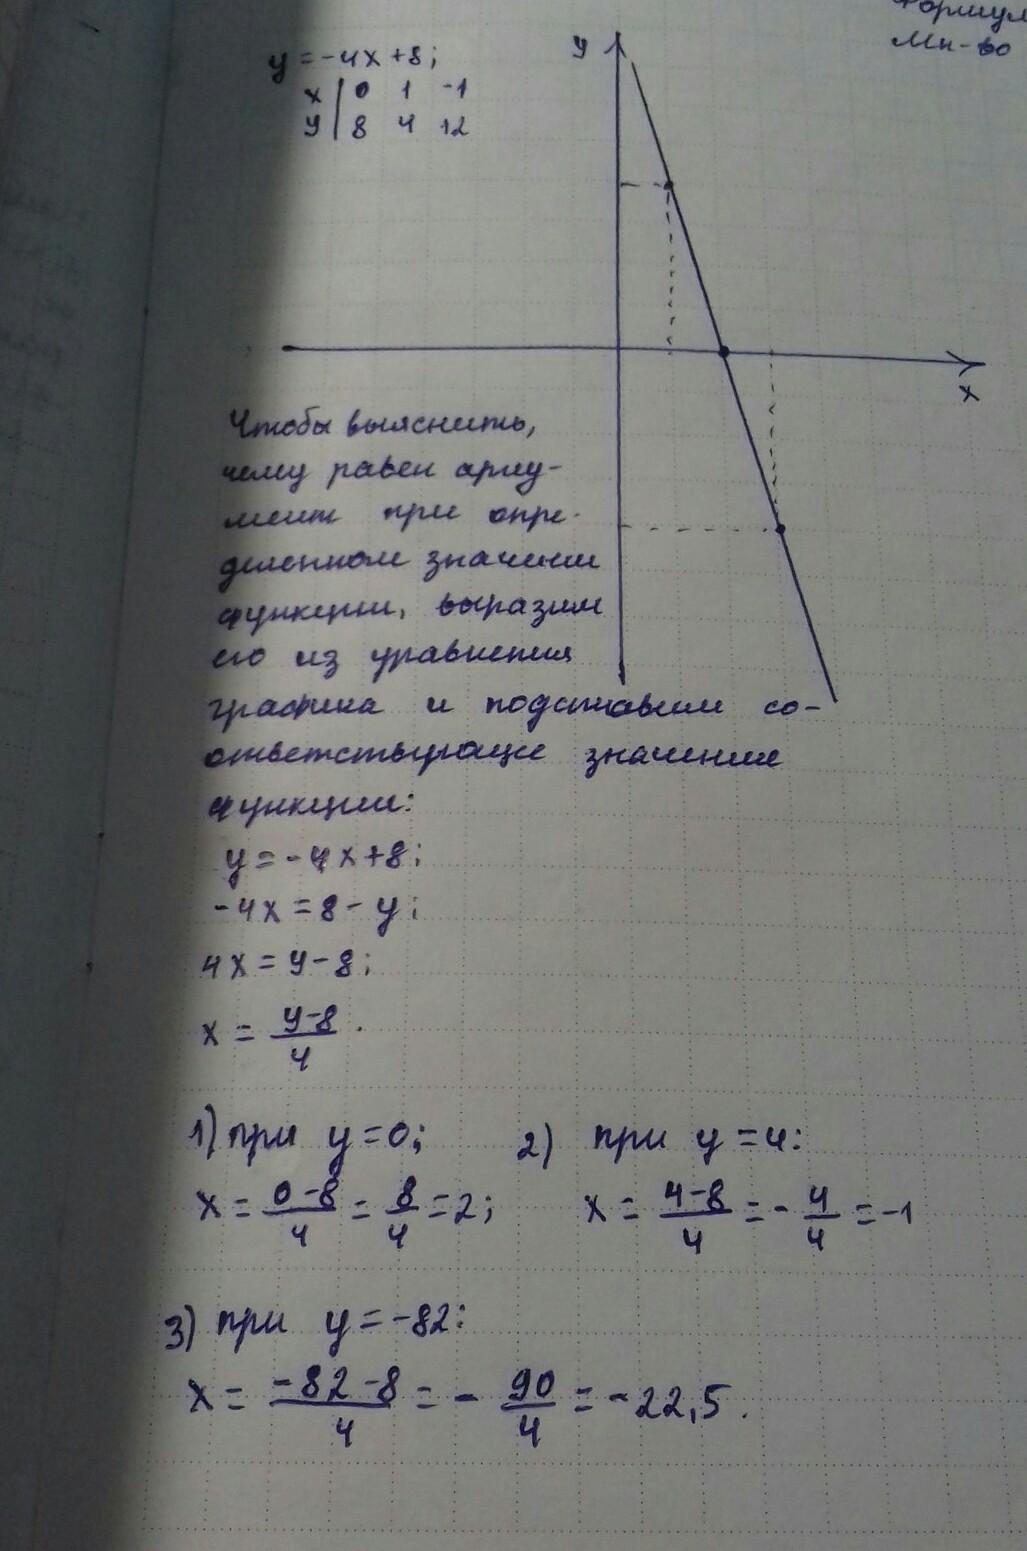 Формул
Мн-во
y = -4x + 8;
x | 0 1 -1
y | 8 4 12
y
x
Чтобы выяснить,
чему равен аргу-
мент при опре-
деленном значении
функции, выразим
его из уравнения
графика и подставим со-
ответствующее значение
функции:
y = -4x + 8;
-4x = 8 - y;
4x = y - 8;
x = \frac{y-8}{4}.
1) при y = 0;
x = \frac{0-8}{4} = \frac{8}{4} = 2;
2) при y = 4:
x = \frac{4-8}{4} = -\frac{4}{4} = -1
3) при y = -82:
x = \frac{-82-8}{4} = -\frac{90}{4} = -22,5.